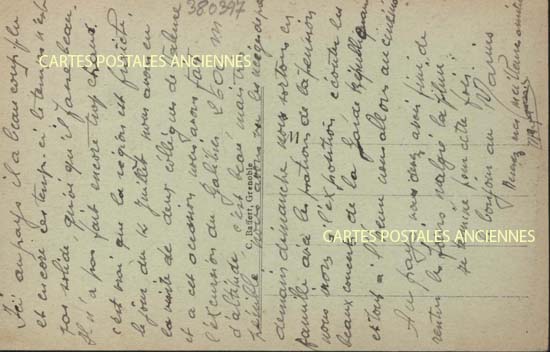 380397
CARTES POSTALES ANCIENNES
CARTES POSTALES ANCIENNES
C. Baffert, Grenoble
Ici au pays il a beaucoup plu
et encore ces temps ci le temps n'est
pas solide quoi qu'il fasse beau.
Il n'a pas fait encore trop chaud
c'est vrai que la région est
le jour du 14 Juillet nous avons eu
la visite de deux collègues de Valence
et a cet occasion nous avons fait
l'excursion du Galibier 2600 m
d'altitude c'est beau mais
pénible nous avons vu les neiges
demain dimanche nous sortons en
famille avec les patrons de la pension
nous irons à l'exposition écouter les
beaux concerts de la garde Républicaine
et tout à l'heure nous allons au cinéma
Au pays vous devez avoir fini de
rentrer les foins malgré la pluie
je termine pour cette fois
bonjour au
Recevez nos meilleures amitiés